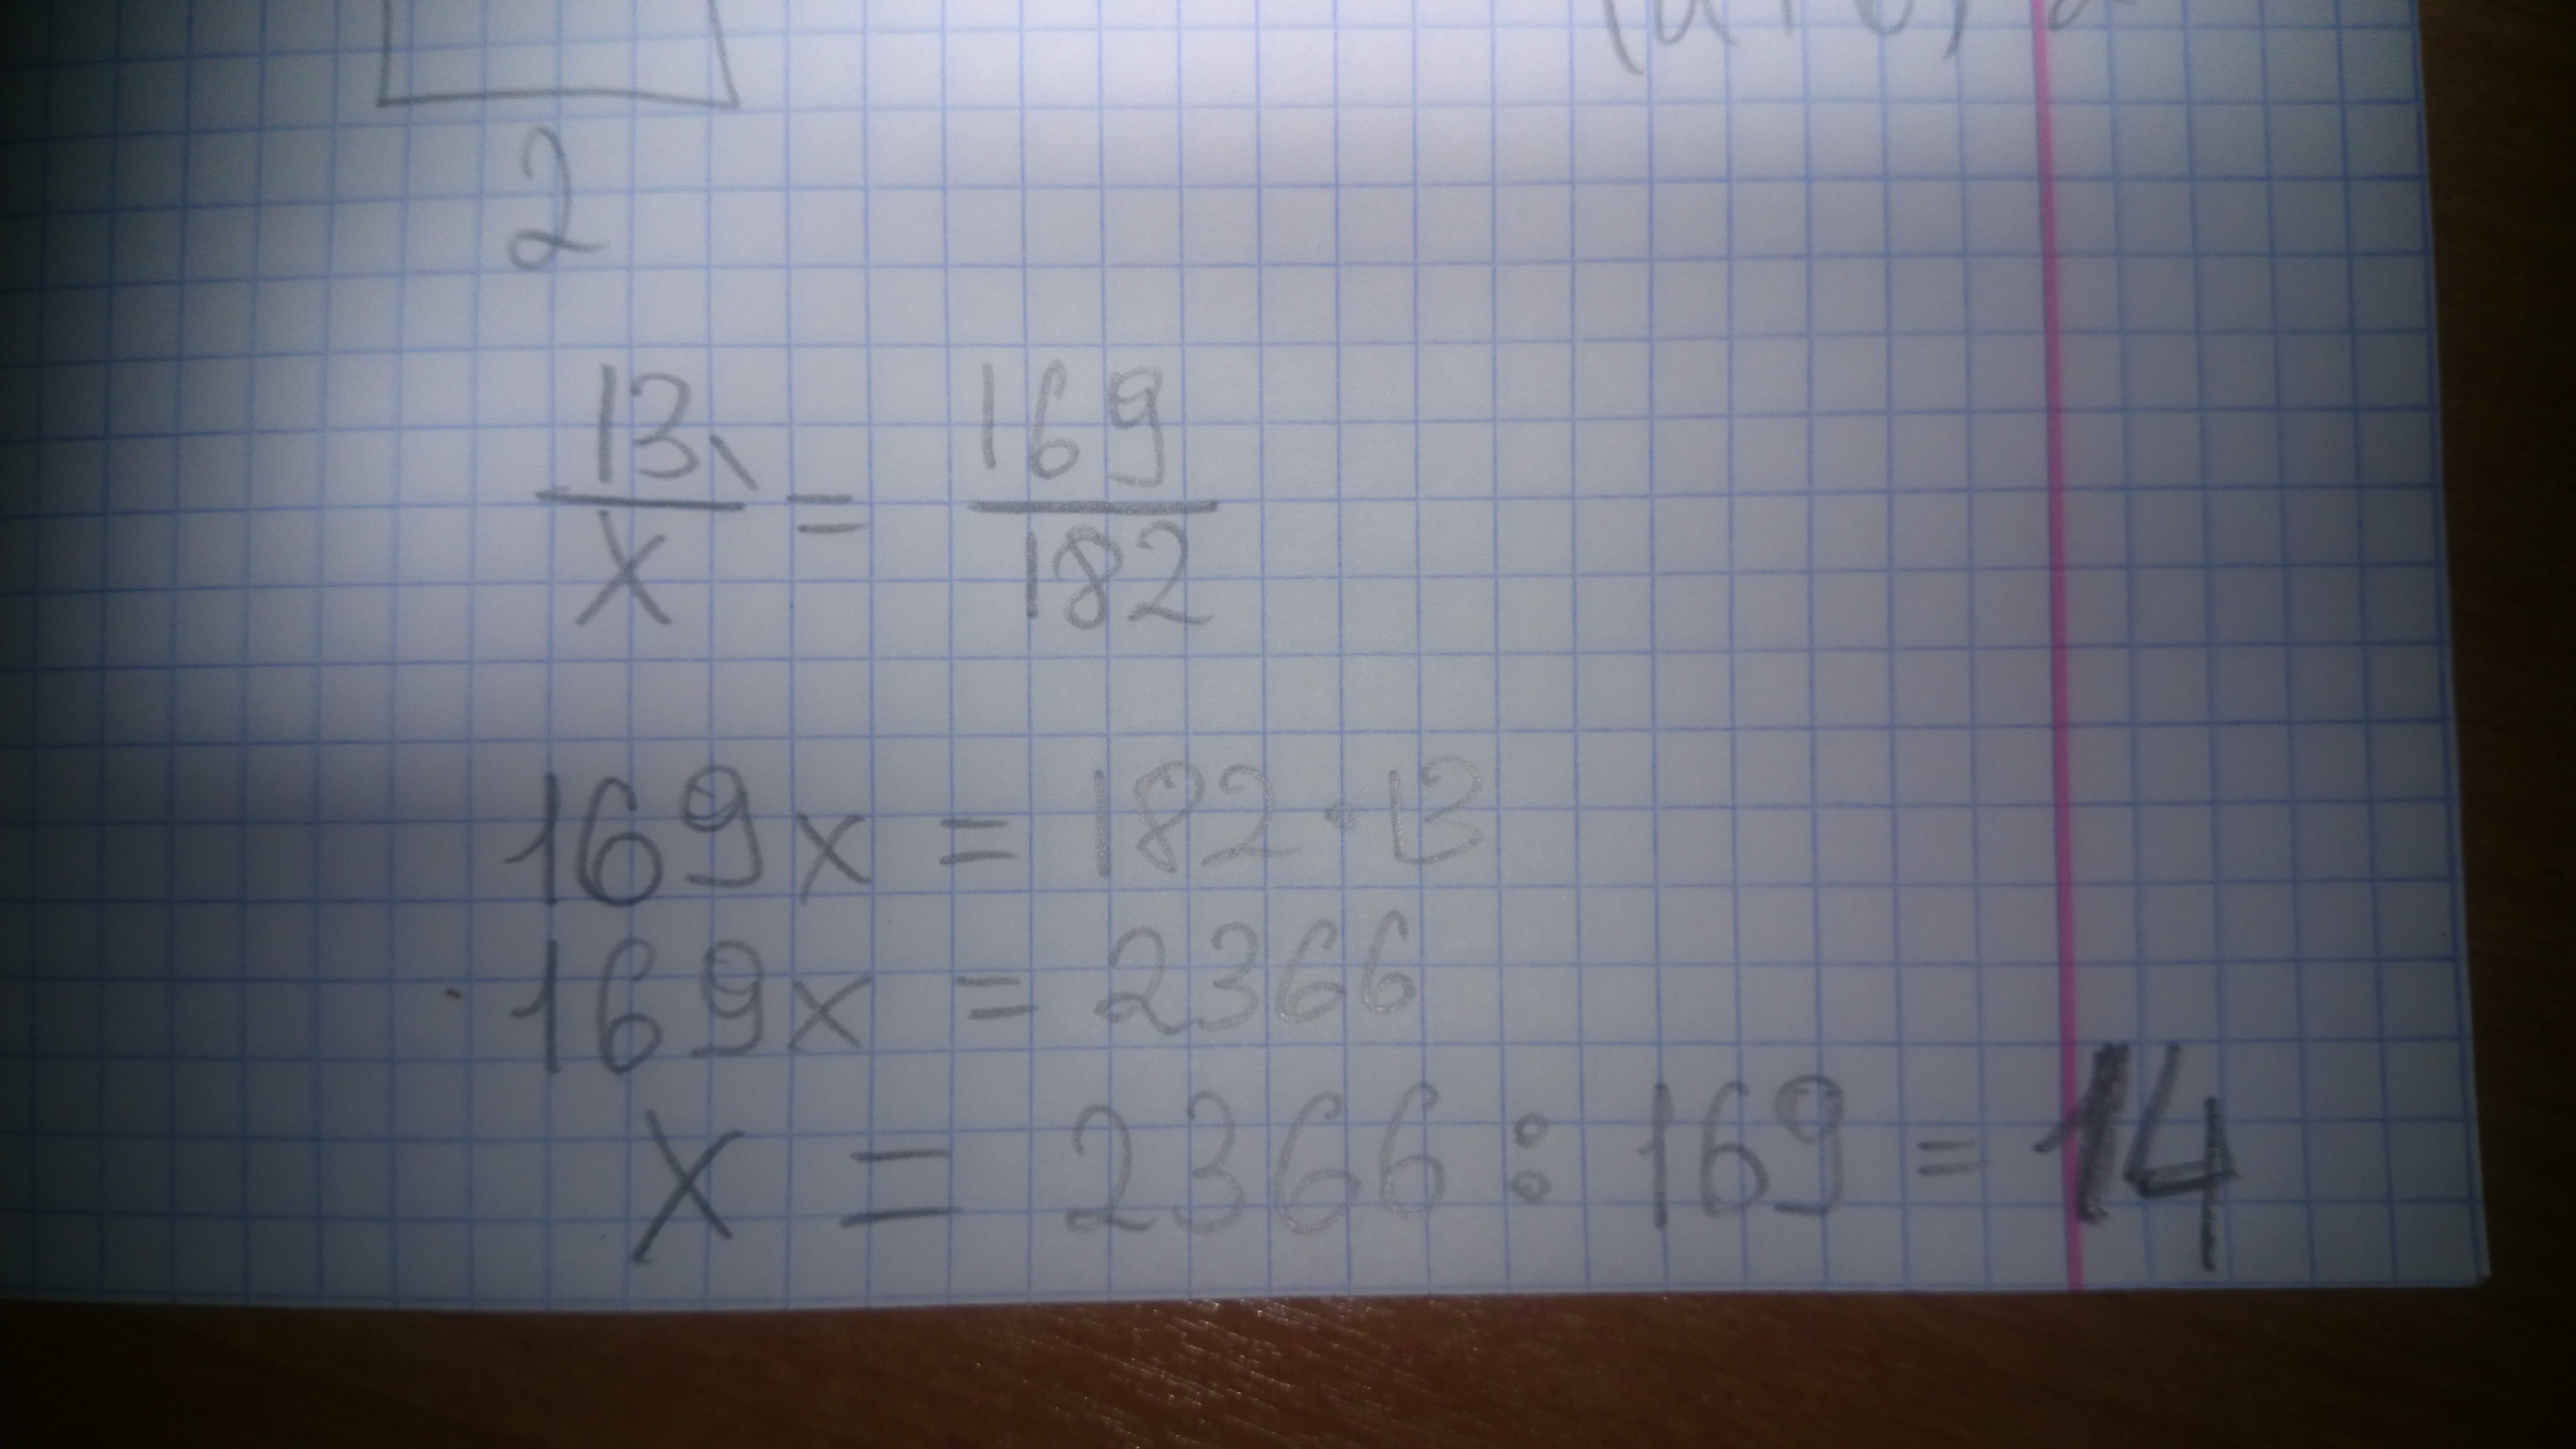 2
13 / x = 169 / 182
169x = 182 · 13
169x = 2366
x = 2366 : 169 = 14